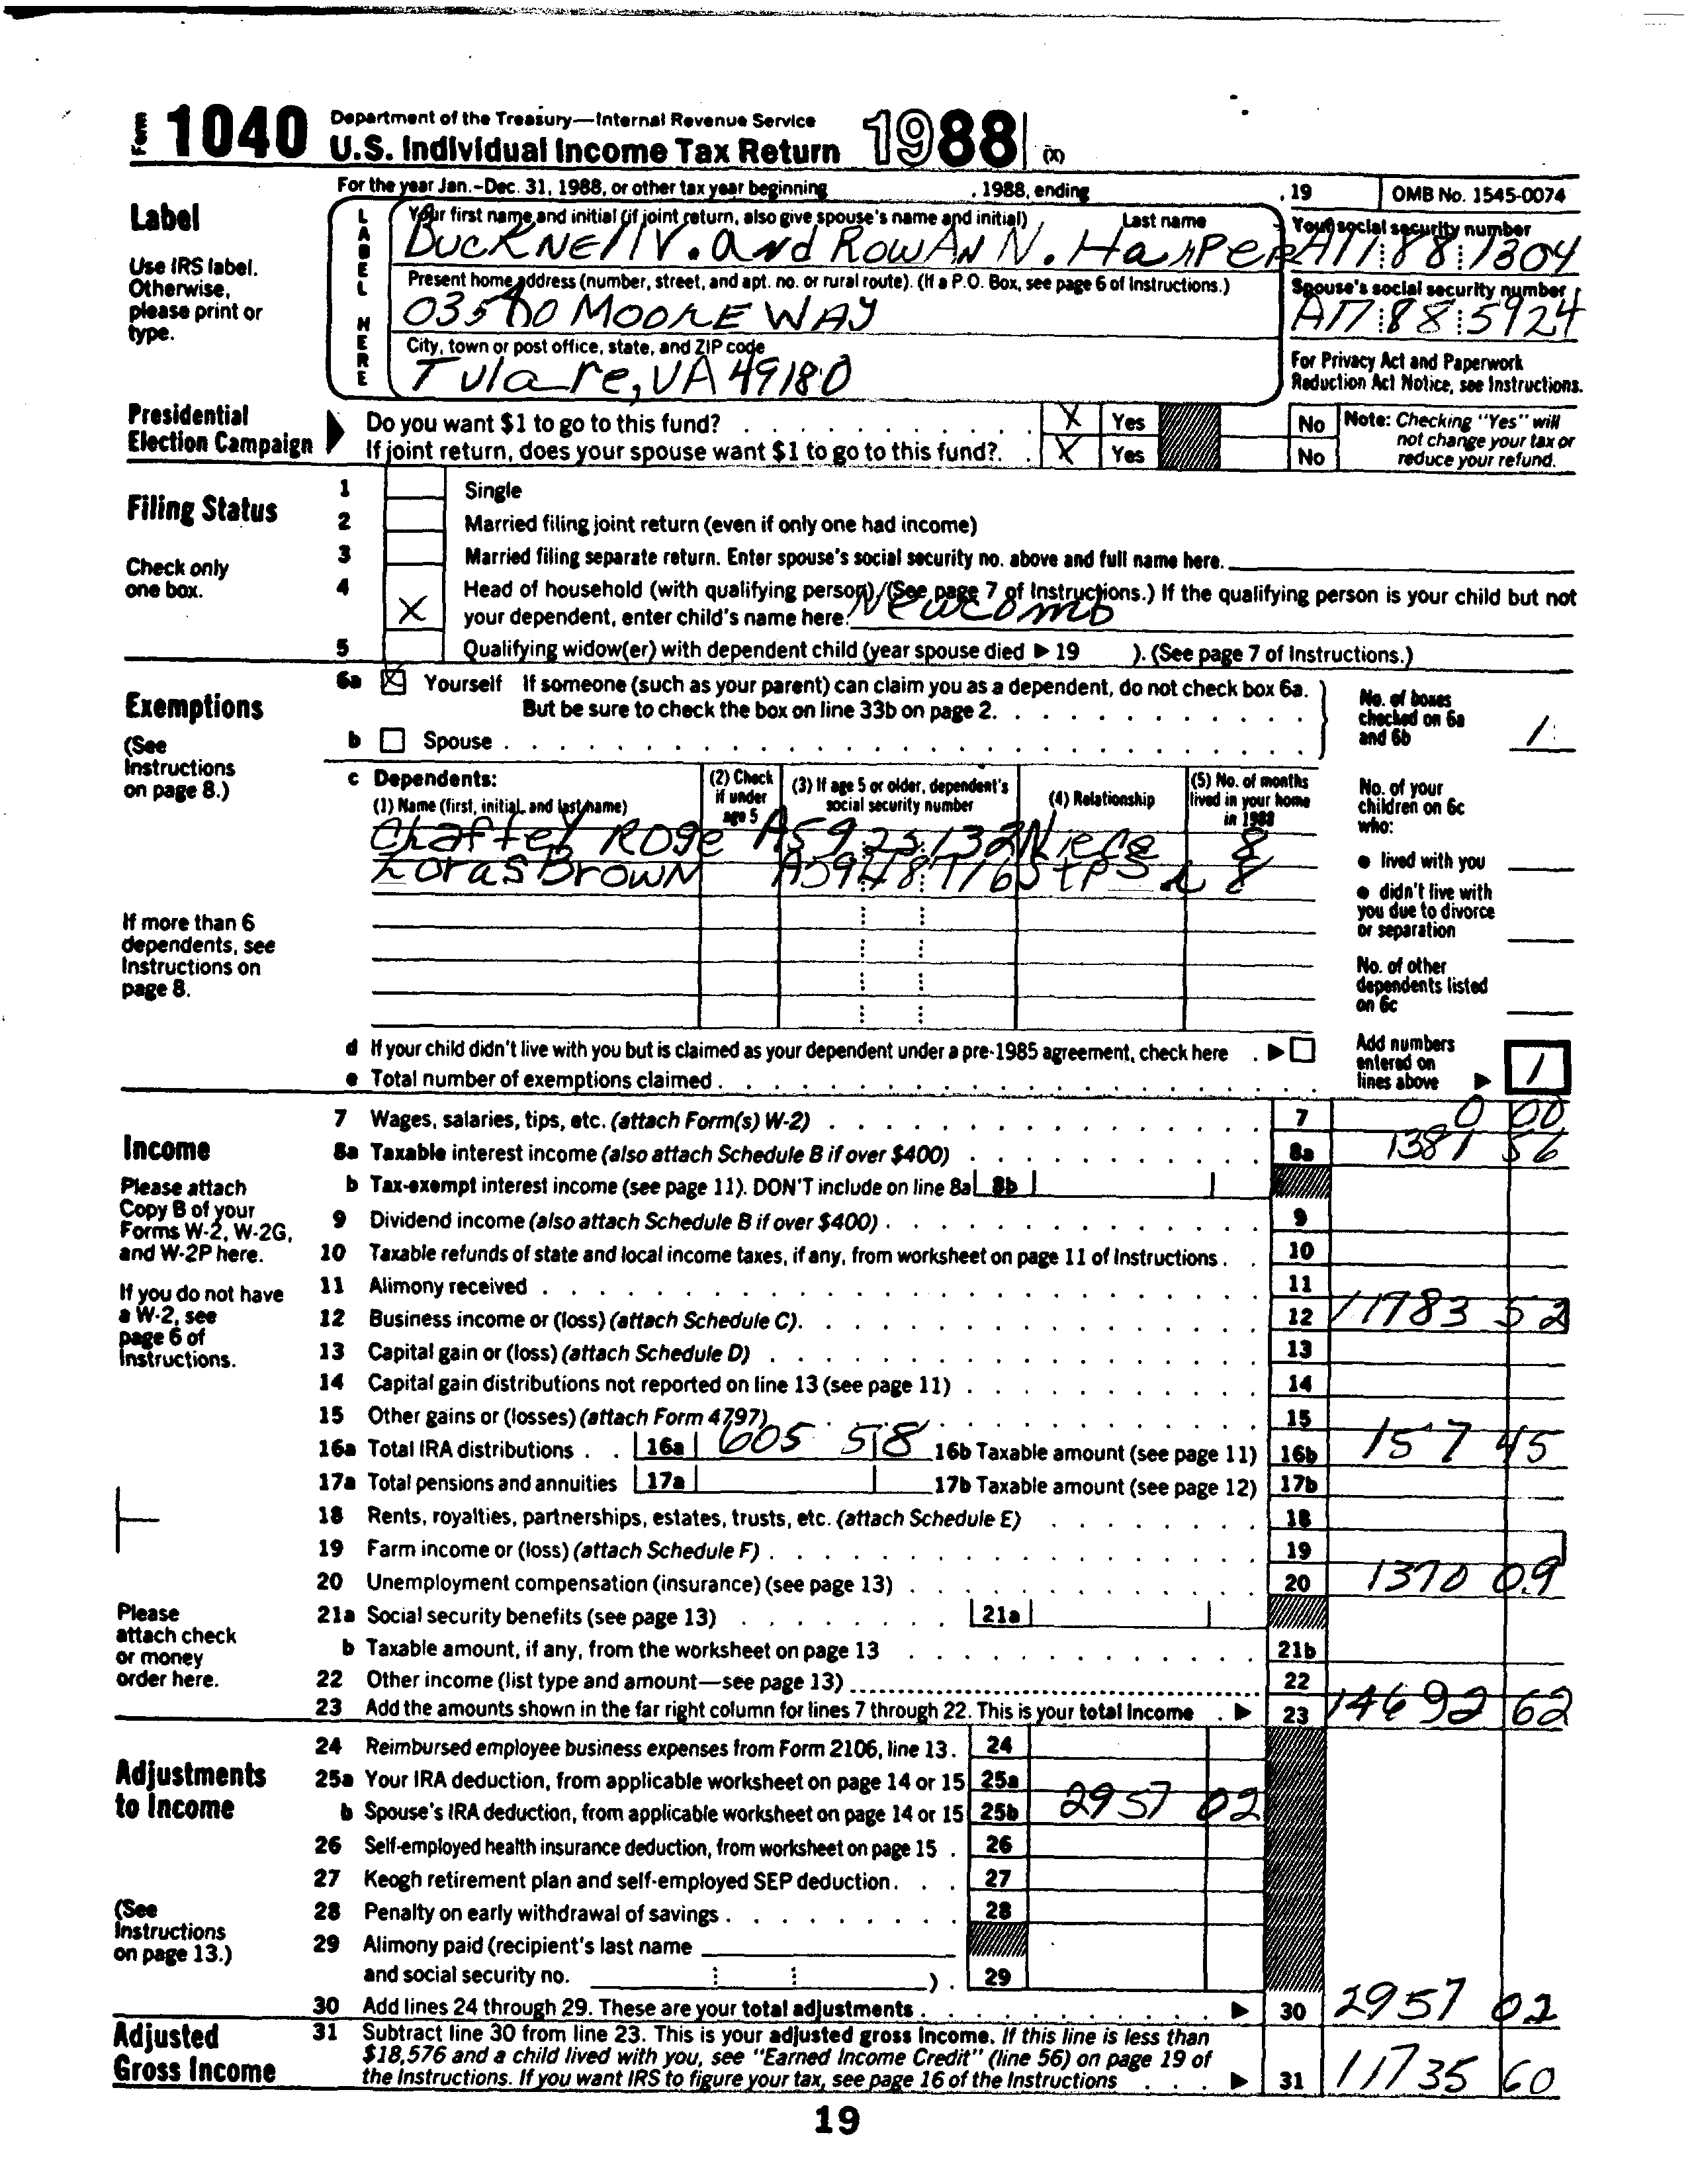 Form 1040 Department of the Treasury—Internal Revenue Service
U.S. Individual Income Tax Return 1988 (X)
For the year Jan.-Dec. 31, 1988, or other tax year beginning , 1988, ending , 19 OMB No. 1545-0074
Label
Use IRS label. Otherwise, please print or type.
LABEL HERE
Your first name and initial (if joint return, also give spouse's name and initial) Last name
BUCKNEll V. and ROWAN N. HaRPER
Your social security number
A11 88 1304
Present home address (number, street, and apt. no. or rural route). (If a P.O. Box, see page 6 of Instructions.)
MOORE WAY
Spouse's social security number
A17 88 5924
City, town or post office, state, and ZIP code
Tulare, VA 49180
For Privacy Act and Paperwork Reduction Act Notice, see Instructions.
Presidential Election Campaign
Do you want $1 to go to this fund? X Yes No
If joint return, does your spouse want $1 to go to this fund?. X Yes No
Note: Checking "Yes" will not change your tax or reduce your refund.
Filing Status
Check only one box.
1 Single
2 Married filing joint return (even if only one had income)
3 Married filing separate return. Enter spouse's social security no. above and full name here.
4 X Head of household (with qualifying person). (See page 7 of Instructions.) If the qualifying person is your child but not
your dependent, enter child's name here. Newcomb
5 Qualifying widow(er) with dependent child (year spouse died ▶ 19 ). (See page 7 of Instructions.)
Exemptions
(See Instructions on page 8.)
6a X Yourself If someone (such as your parent) can claim you as a dependent, do not check box 6a.
But be sure to check the box on line 33b on page 2.
b Spouse
No. of boxes checked on 6a and 6b 1
c Dependents:
(1) Name (first, initial, and last name)
(2) Check if under age 5
(3) If age 5 or older, dependent's social security number
(4) Relationship
(5) No. of months lived in your home in 1988
Rose A59 25 132 Niece 8
Loras Brown 8
If more than 6 dependents, see Instructions on page 8.
No. of your children on 6c who:
● lived with you
● didn't live with you due to divorce or separation
No. of other dependents listed on 6c
d If your child didn't live with you but is claimed as your dependent under a pre-1985 agreement, check here ▶
e Total number of exemptions claimed
Add numbers entered on lines above ▶ 1
Income
Please attach Copy B of your Forms W-2, W-2G, and W-2P here.
If you do not have a W-2, see page 6 of Instructions.
Please attach check or money order here.
7 Wages, salaries, tips, etc. (attach Form(s) W-2) 7 0 00
8a Taxable interest income (also attach Schedule B if over $400) 8a 1381 56
b Tax-exempt interest income (see page 11). DON'T include on line 8a 8b
9 Dividend income (also attach Schedule B if over $400) 9
10 Taxable refunds of state and local income taxes, if any, from worksheet on page 11 of Instructions 10
11 Alimony received 11
12 Business income or (loss) (attach Schedule C). 12 11783 52
13 Capital gain or (loss) (attach Schedule D) 13
14 Capital gain distributions not reported on line 13 (see page 11) 14
15 Other gains or (losses) (attach Form 4797) 15
16a Total IRA distributions 16a 605 58 16b Taxable amount (see page 11) 16b 157 45
17a Total pensions and annuities 17a 17b Taxable amount (see page 12) 17b
18 Rents, royalties, partnerships, estates, trusts, etc. (attach Schedule E) 18
19 Farm income or (loss) (attach Schedule F) 19
20 Unemployment compensation (insurance) (see page 13) 20 1370 09
21a Social security benefits (see page 13) 21a
b Taxable amount, if any, from the worksheet on page 13 21b
22 Other income (list type and amount—see page 13) 22
23 Add the amounts shown in the far right column for lines 7 through 22. This is your total income ▶ 23 14692 62
Adjustments to Income
(See Instructions on page 13.)
24 Reimbursed employee business expenses from Form 2106, line 13. 24
25a Your IRA deduction, from applicable worksheet on page 14 or 15 25a
b Spouse's IRA deduction, from applicable worksheet on page 14 or 15 25b 2957 02
26 Self-employed health insurance deduction, from worksheet on page 15 26
27 Keogh retirement plan and self-employed SEP deduction 27
28 Penalty on early withdrawal of savings 28
29 Alimony paid (recipient's last name
and social security no. ) 29
30 Add lines 24 through 29. These are your total adjustments ▶ 30 2957 02
Adjusted Gross Income
31 Subtract line 30 from line 23. This is your adjusted gross income. If this line is less than
$18,576 and a child lived with you, see "Earned Income Credit" (line 56) on page 19 of
the Instructions. If you want IRS to figure your tax, see page 16 of the Instructions ▶ 31 11735 60
19